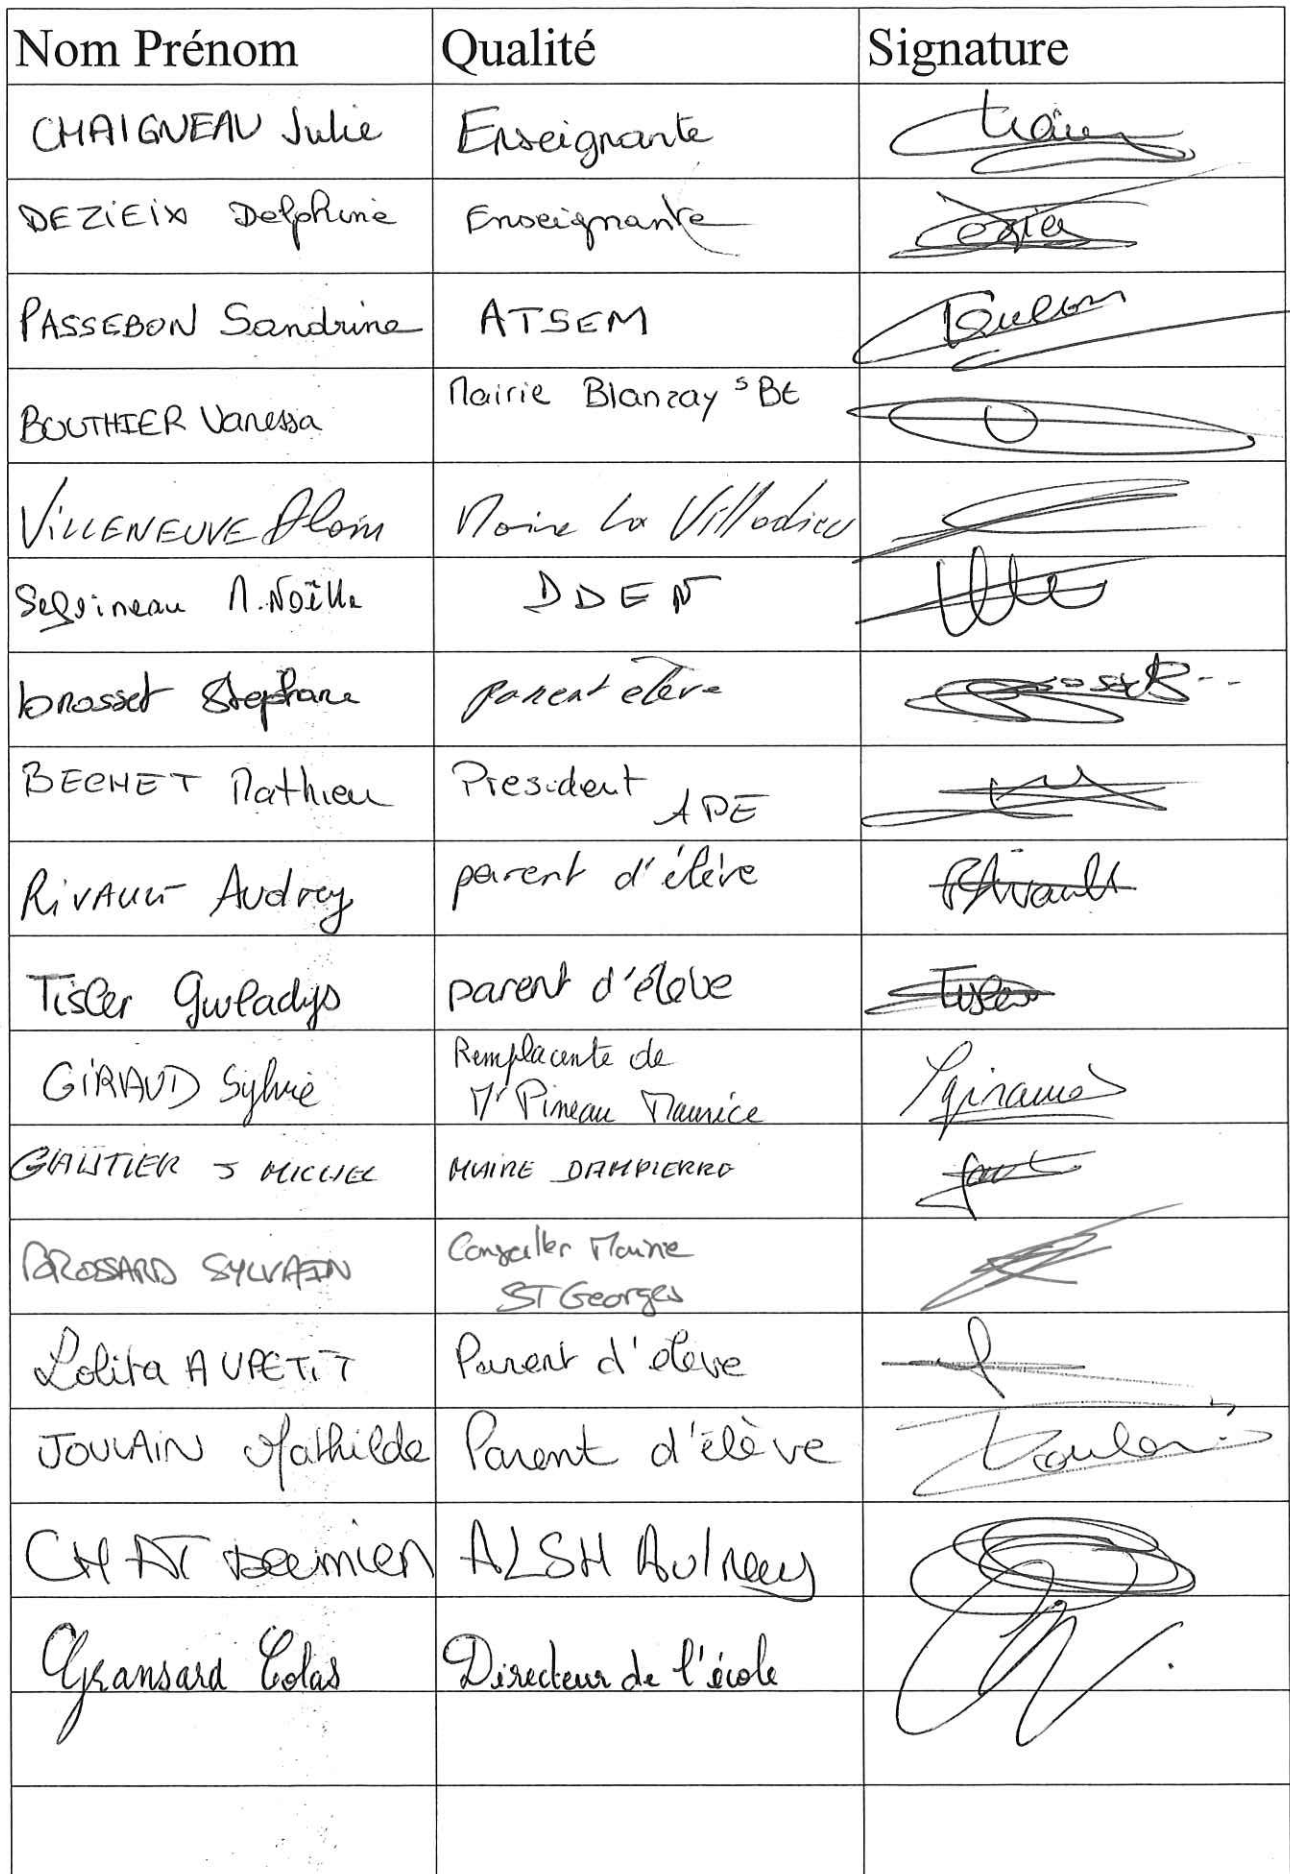 Nom Prénom Qualité Signature
CHAIGNEAU Julie Enseignante
DEZIEIX Delphine Enseignante
PASSEBON Sandrine ATSEM
BOUTHIER Vanessa Mairie Blanzay s Bt
VILLENEUVE Alain Maire La Villedieu
M. Noëlle DDEN
brosset Stephane parent élève
BECHET Mathieu President
APE
RIVAULT Audrey parent d'élève Rivault
Tisler Gwladys parent d'éleve Tisler
GIRAUD Sylvie Remplacante de
Mr Pineau Maurice
GAUTIER J MICHEL MAIRE DAMPIERRE
BROSSARD SYLVAIN Conseiller Mairie
ST Georges
Lolita AUPETIT Parent d'eleve
JOULAIN Mathilde Parent d'élève
CHAT Damien ALSH Aulnay
Gransard Colas Directeur de l'école